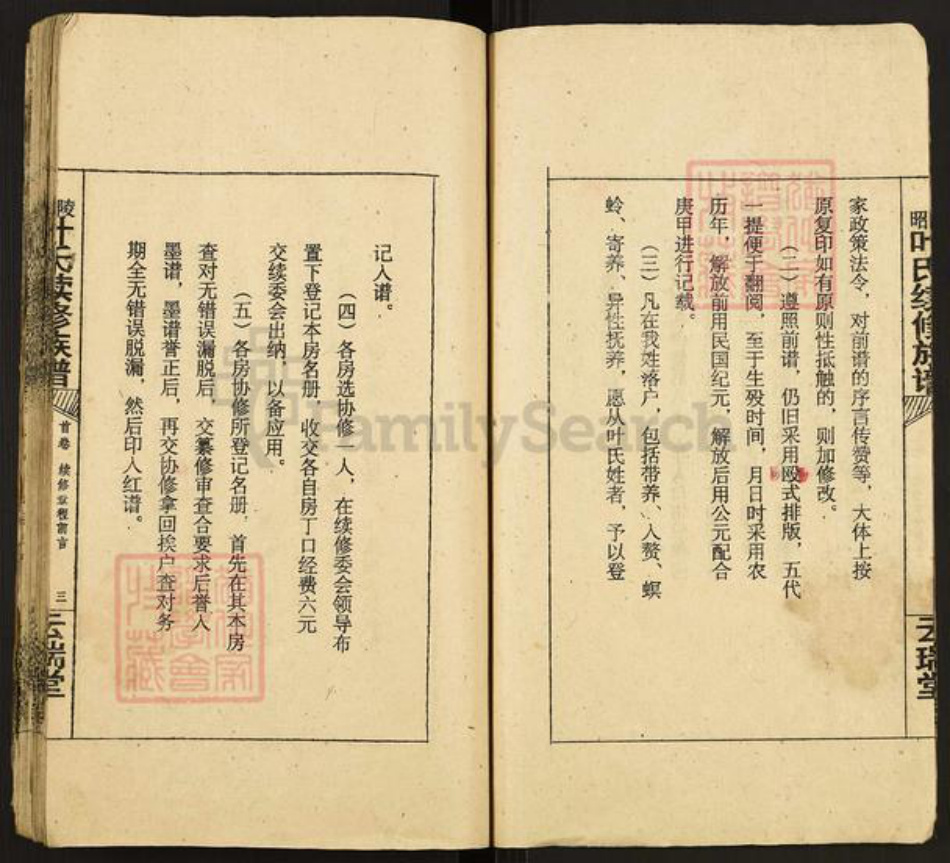 家政策法令，对前谱的序言传赞等，大体上按
原复印如有原则性抵触的，则加修改。
（二）遵照前谱，仍旧采用殴式排版，五代
一提便于翻阅，至于生殁时间，月日时采用农
历年，解放前用民国纪元，解放后用公元配合
庚甲进行记载。
（三）凡在我姓落户，包括带养、入赘、螟
蛉、寄养、异性抚养，愿从叶氏姓者，予以登
昭
叶氏续修族谱
云瑞堂
记入谱。
（四）各房选协修一人，在续修委会领导布
置下登记本房名册，收交各自房丁口经费六元
交续委会出纳，以备应用。
（五）各房协修所登记名册，首先在其本房
查对无错误漏脱后，交纂修审查合要求后誉人
墨谱，墨谱誉正后，再交协修拿回挨户查对务
期全无错误脱漏，然后印人红谱。
陵
叶氏续修族谱
首卷 续修章程前言
三
云瑞堂
FamilySearch